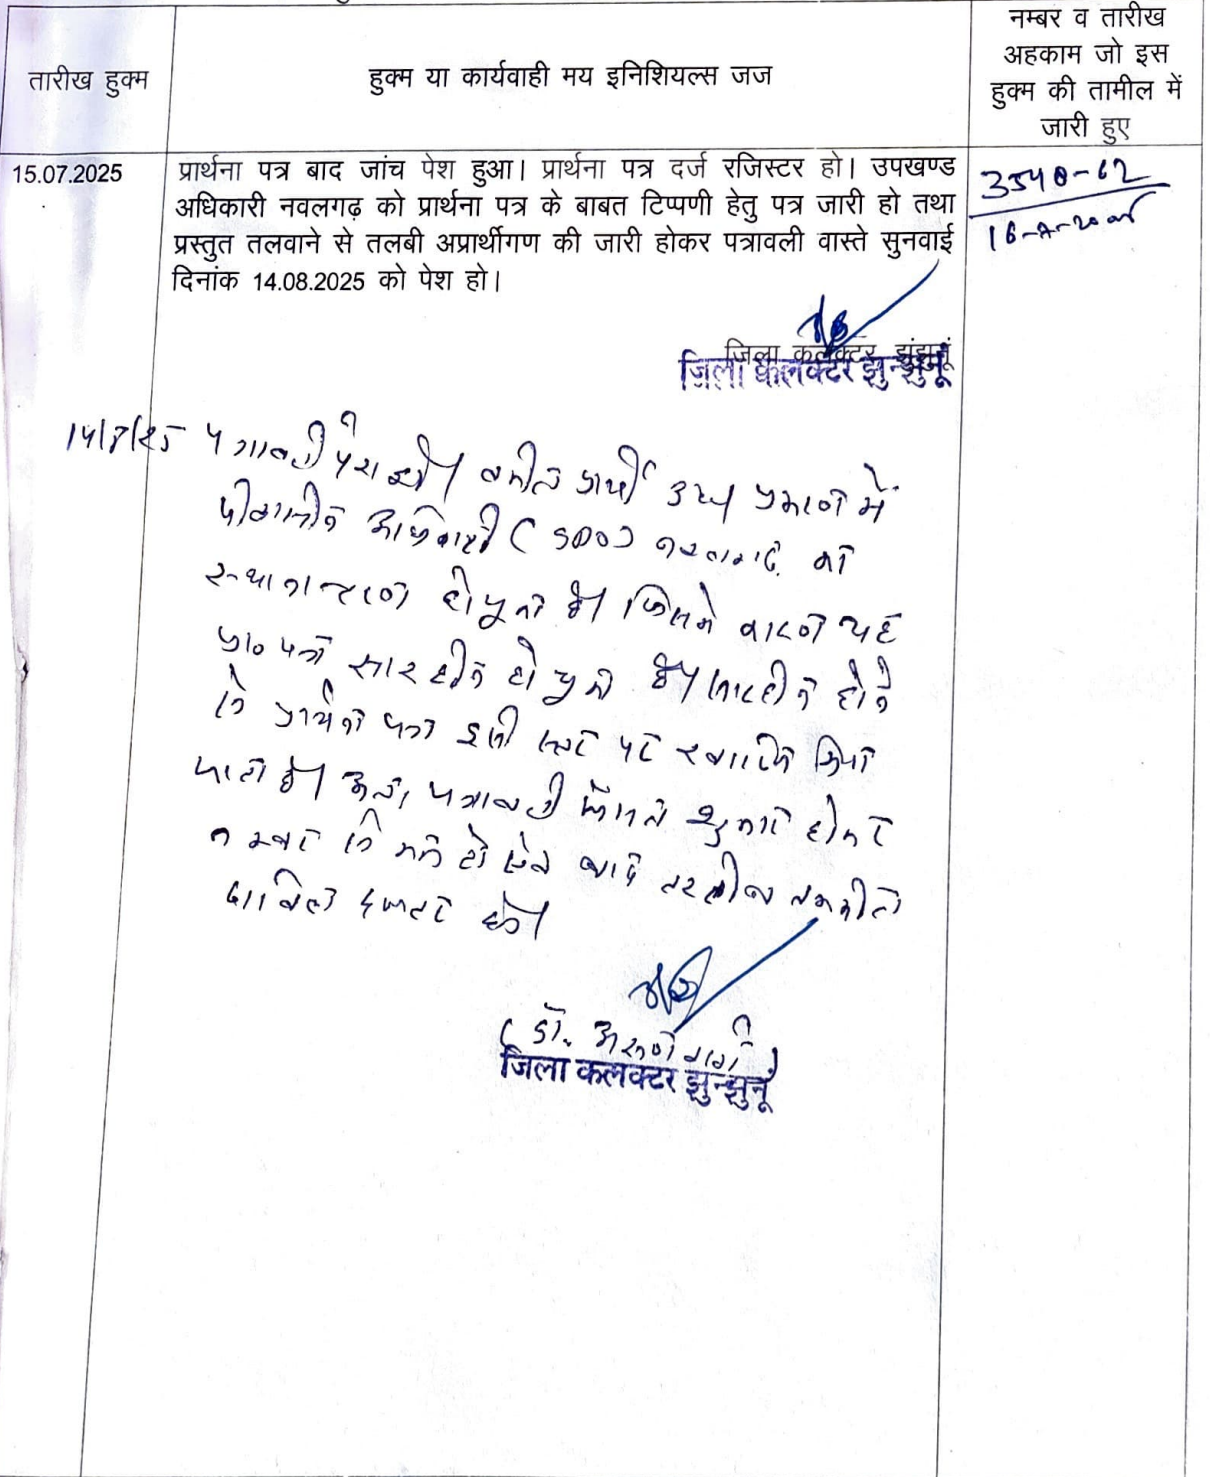 तारीख हुक्म
हुक्म या कार्यवाही मय इनिशियल्स जज
नम्बर व तारीख
अहकाम जो इस
हुक्म की तामील में
जारी हुए
15.07.2025
प्रार्थना पत्र बाद जांच पेश हुआ। प्रार्थना पत्र दर्ज रजिस्टर हो। उपखण्ड
अधिकारी नवलगढ़ को प्रार्थना पत्र के बाबत टिप्पणी हेतु पत्र जारी हो तथा
प्रस्तुत तलवाने से तलबी अप्रार्थीगण की जारी होकर पत्रावली वास्ते सुनवाई
दिनांक 14.08.2025 को पेश हो।
3548-62
जिला कलक्टर, झुंझुनूं
जिला कलक्टर झुन्झुनू
14/8/25 पत्रावली पेश हुई। वकील प्रार्थी प्रकरण में
पीठासीन अधिकारी (SDO) नवलगढ़ का
स्थानान्तरण हो चुका है। जिसके कारण यह
प्रा० पत्र सारहीन हो चुका है। सारहीन होने
से प्रार्थना पत्र इसी स्तर पर खारिज किया
जाता है। अतः पत्रावली फैसल शुमार होकर
नम्बर से कम हो बाद तरतीब तकमील
दाखिल दफ्तर हो।
(डॉ. अरुण गर्ग)
जिला कलक्टर झुन्झुनू